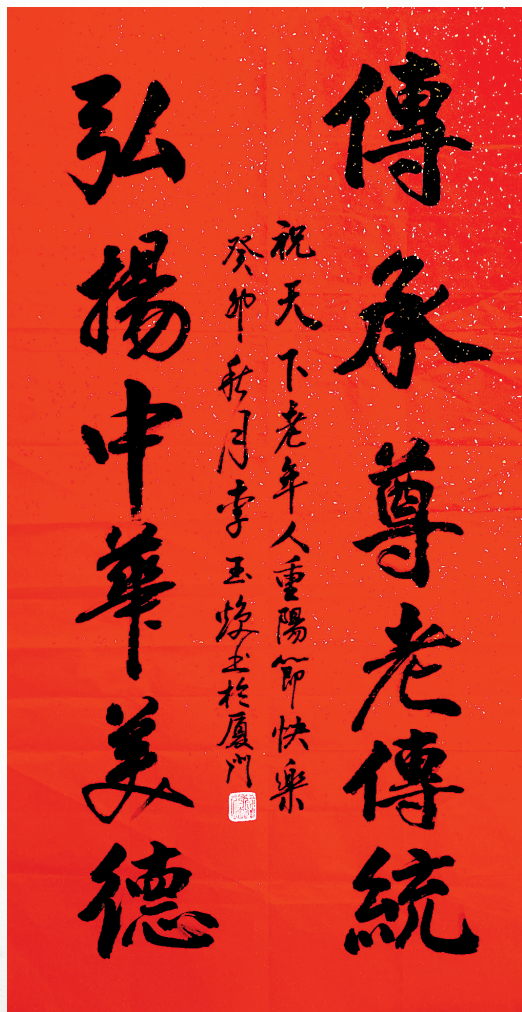 傳承尊老傳統
祝天下老年人重陽節快樂
癸卯秋月李玉焕书於廈門
弘揚中華美德